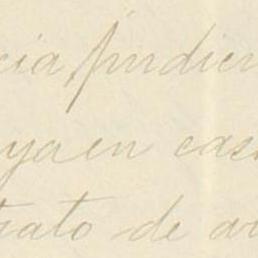 cia pudien
ya en cas
trato de